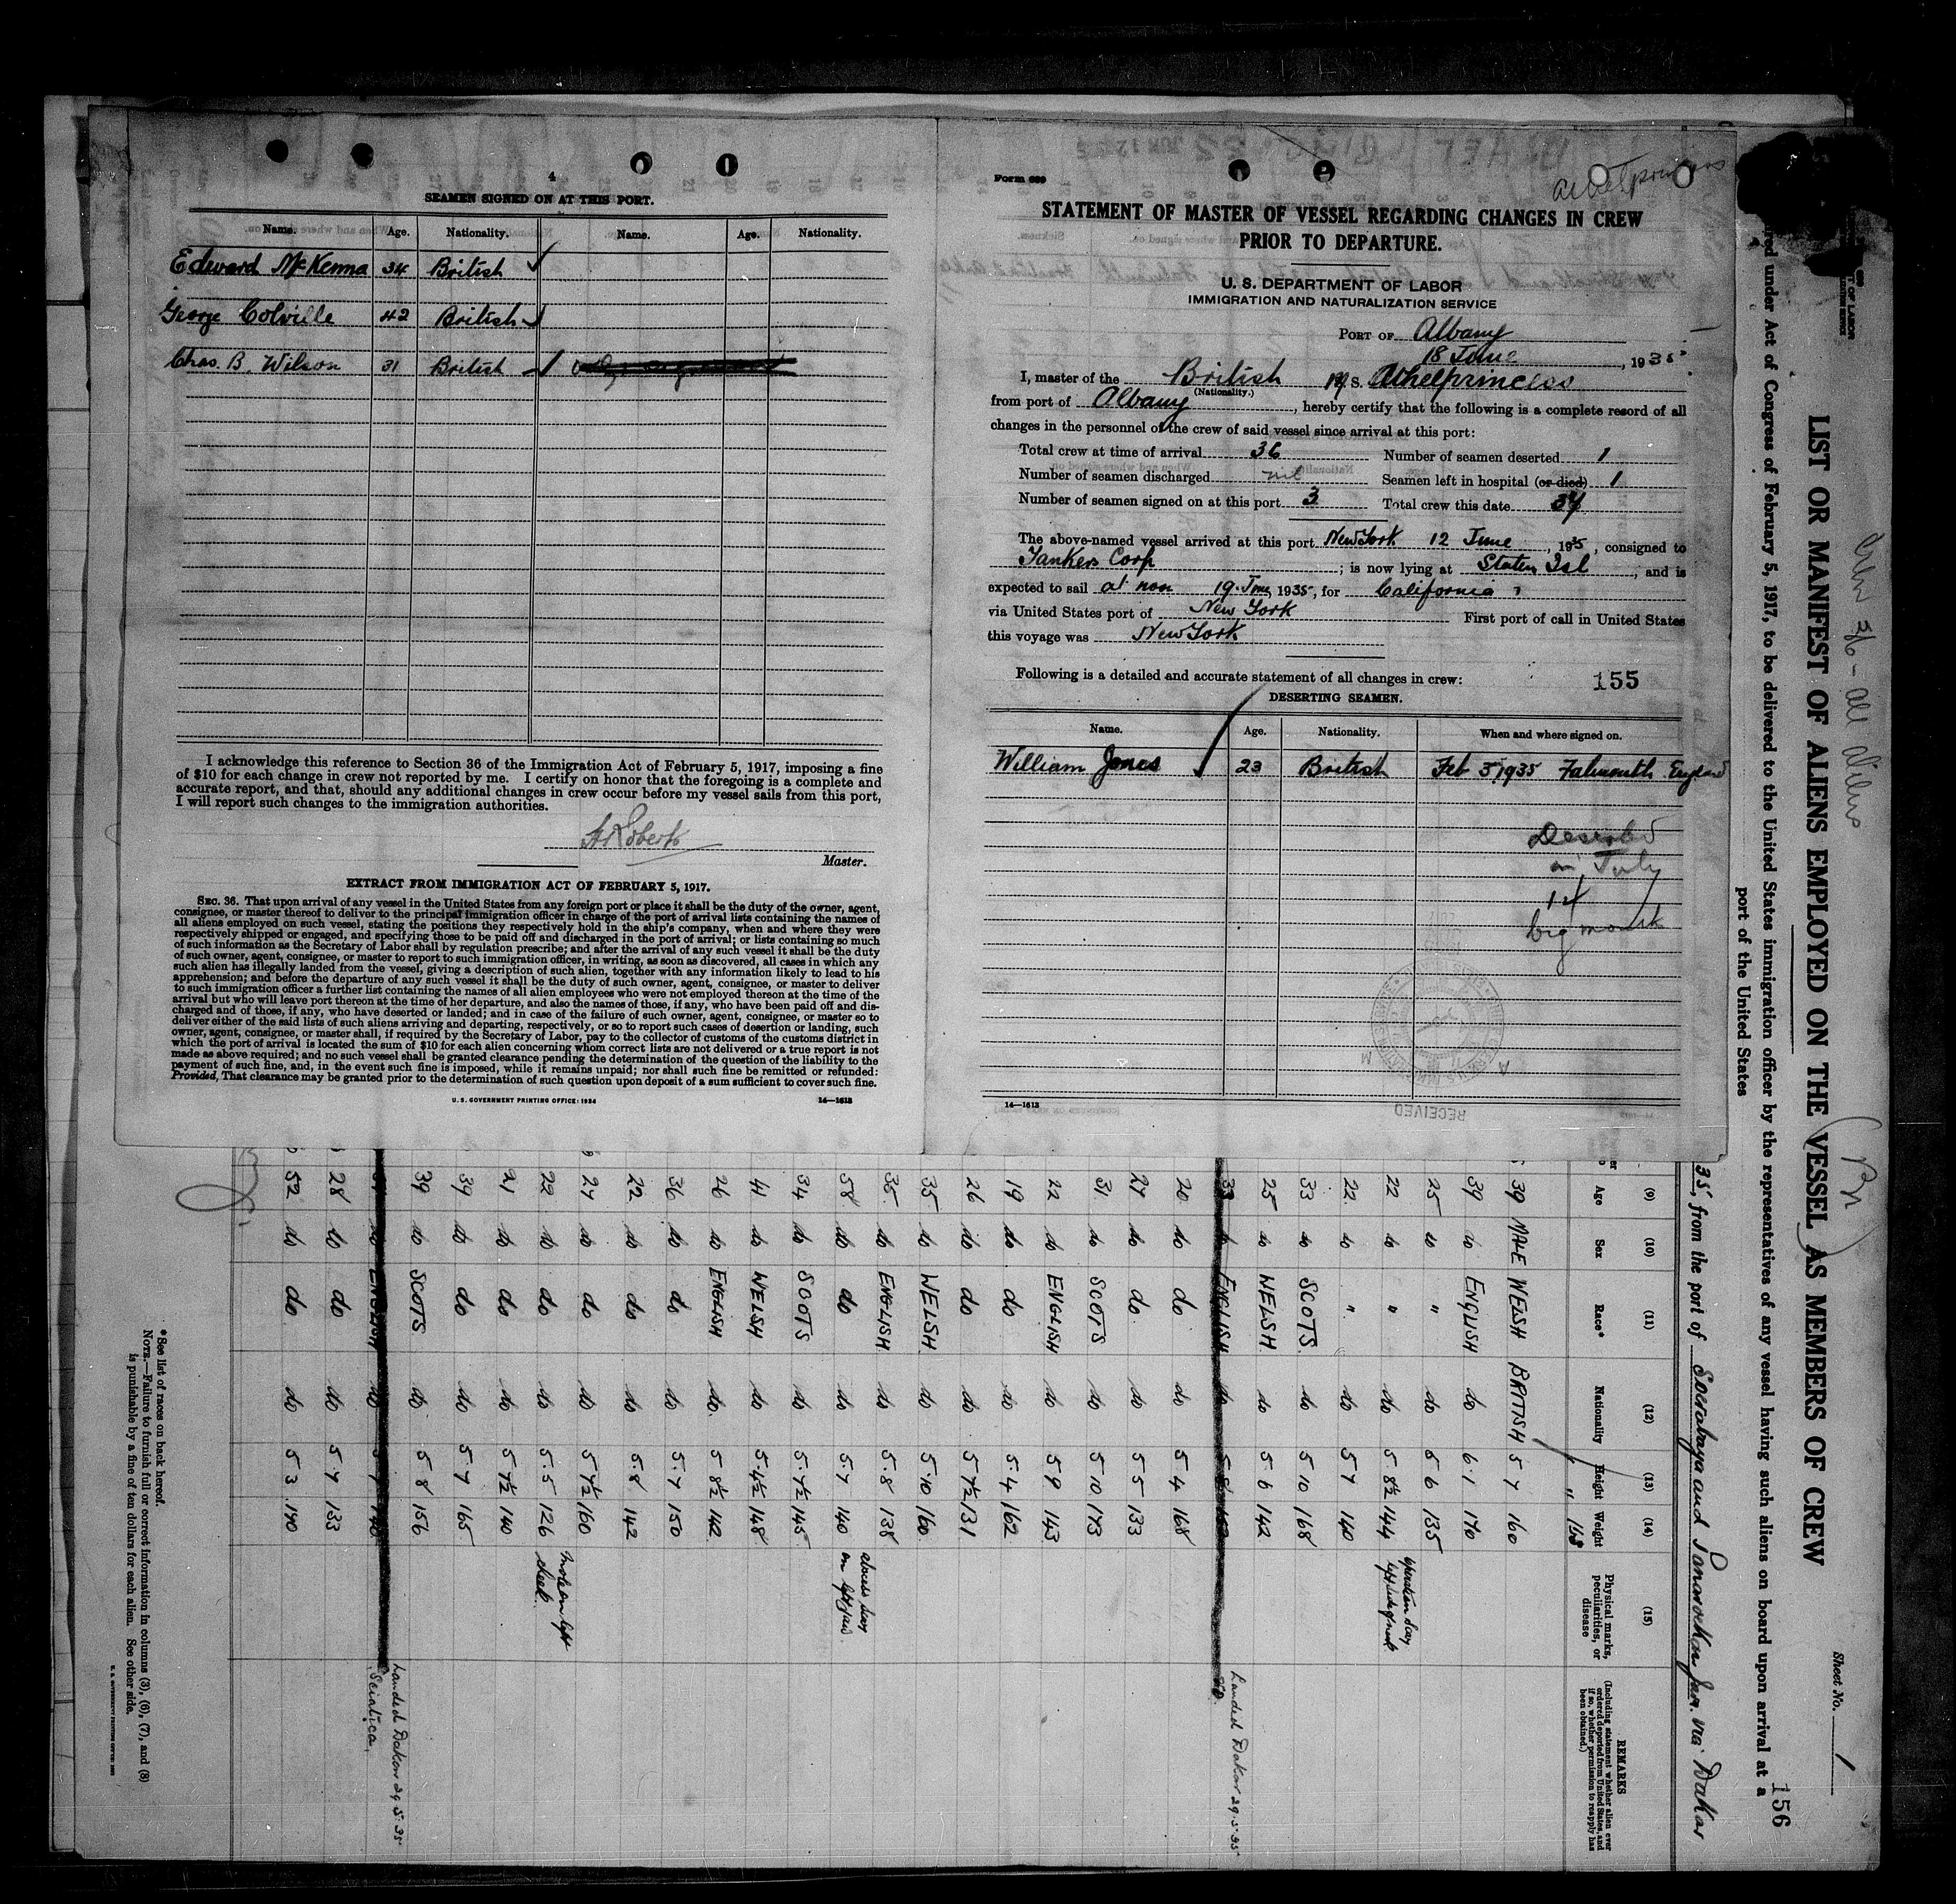 4
SEAMEN SIGNED ON AT THIS PORT.
Name. Age. Nationality. Name. Age. Nationality.
Edward McKenna 34 British
George Colville 42 British
Chas. B. Wilson 31 British
I acknowledge this reference to Section 36 of the Immigration Act of February 5, 1917, imposing a fine
of $10 for each change in crew not reported by me. I certify on honor that the foregoing is a complete and
accurate report, and that, should any additional changes in crew occur before my vessel sails from this port,
I will report such changes to the immigration authorities.
Roberts
Master.
EXTRACT FROM IMMIGRATION ACT OF FEBRUARY 5, 1917.
SEC. 36. That upon arrival of any vessel in the United States from any foreign port or place it shall be the duty of the owner, agent,
consignee, or master thereof to deliver to the principal immigration officer in charge of the port of arrival lists containing the names of
all aliens employed on such vessel, stating the positions they respectively hold in the ship's company, when and where they were
respectively shipped or engaged, and specifying those to be paid off and discharged in the port of arrival; or lists containing so much
of such information as the Secretary of Labor shall by regulation prescribe; and after the arrival of any such vessel it shall be the duty
of such owner, agent, consignee, or master to report to such immigration officer, in writing, as soon as discovered, all cases in which any
such alien has illegally landed from the vessel, giving a description of such alien, together with any information likely to lead to his
apprehension; and before the departure of any such vessel it shall be the duty of such owner, agent, consignee, or master to deliver
to such immigration officer a further list containing the names of all alien employees who were not employed thereon at the time of the
arrival but who will leave port thereon at the time of her departure, and also the names of those, if any, who have been paid off and dis-
charged and of those, if any, who have deserted or landed; and in case of the failure of such owner, agent, consignee, or master so to
deliver either of the said lists of such aliens arriving and departing, respectively, or so to report such cases of desertion or landing, such
owner, agent, consignee, or master shall, if required by the Secretary of Labor, pay to the collector of customs of the customs district in
which the port of arrival is located the sum of $10 for each alien concerning whom correct lists are not delivered or a true report is not
made as above required; and no such vessel shall be granted clearance pending the determination of the question of the liability to the
payment of such fine, and, in the event such fine is imposed, while it remains unpaid; nor shall such fine be remitted or refunded:
Provided, That clearance may be granted prior to the determination of such question upon deposit of a sum sufficient to cover such fine.
U. S. GOVERNMENT PRINTING OFFICE: 1934 14—1613
Form 689
Athelprincess
STATEMENT OF MASTER OF VESSEL REGARDING CHANGES IN CREW
PRIOR TO DEPARTURE.
U. S. DEPARTMENT OF LABOR
IMMIGRATION AND NATURALIZATION SERVICE
PORT OF Albany
18 June, 1935
I, master of the British M. S. Athelprincess
(Nationality.)
from port of Albany, hereby certify that the following is a complete record of all
changes in the personnel of the crew of said vessel since arrival at this port:
Total crew at time of arrival 36 Number of seamen deserted 1
Number of seamen discharged nil Seamen left in hospital (or died) 1
Number of seamen signed on at this port 3 Total crew this date 37
The above-named vessel arrived at this port New York 12 June, 1935, consigned to
Tankers Corp; is now lying at Staten Isl, and is
expected to sail at noon 19 June, 1935, for California
via United States port of New York First port of call in United States
this voyage was New York
Following is a detailed and accurate statement of all changes in crew: 155
DESERTING SEAMEN.
Name. Age. Nationality. When and where signed on.
William Jones 23 British Feb 5 1935 Falmouth England
Deserted
in July
14
RECEIVED
14—1613
Crew 36 - all aliens
LIST OR MANIFEST OF ALIENS EMPLOYED ON THE VESSEL AS MEMBERS OF CREW
Sheet No. 1
156
red under Act of Congress of February 5, 1917, to be delivered to the United States immigration officer by the representatives of any vessel having such aliens on board upon arrival at a
port of the United States
35, from the port of Soerabaya and Panaroekan Java via Dakar
(9) (10) (11) (12) (13) (14) (15)
Age Sex Race* Nationality Height Weight Physical marks, peculiarities, or disease
REMARKS
(Including statement whether alien ever ordered deported from United States, and if so, whether permission to reapply has been obtained.)
" 168
39 MALE WELSH BRITISH 5 7 160
39 do ENGLISH do 6.1 170
25 do " do 5 6 135
22 do " do 5.8½ 144 operation scar left side of neck
22 do " do 5 7 140
33 do SCOTS do 5 10 168
25 do WELSH do 5 6 142
33 do ENGLISH do Landed Dakar 29.5.35
20 do do do 5 4 168
27 do do do 5 5 133
31 do SCOTS do 5 10 173
22 do ENGLISH do 5 9 143
19 do do do 5.4 162
26 do do do 5 7½ 131
35 do WELSH do 5.10 160
35 do ENGLISH do 5.8 138
58 do do do 5.7 140 abcess scar on left jaw.
34 do SCOTS do 5.7½ 145
41 do WELSH do 5.4½ 148
26 do ENGLISH do 5 8½ 142
36 do do do 5.7 150
22 do do do 5.8 142
27 do do do 5 7½ 160
22 do do do 5.5 126 mole on left cheek.
21 do do do 5 7½ 140
39 do do do 5.7 165
39 do SCOTS do 5 8 156
do ENGLISH do 140 Landed Dakar 29.5.35 Sciatica,
28 do do do 5.7 133
52 do do do 5 3 140
*See list of races on back hereof.
NOTE.—Failure to furnish full or correct information in columns (3), (6), (7), and (8)
is punishable by a fine of ten dollars for each alien. See other side.